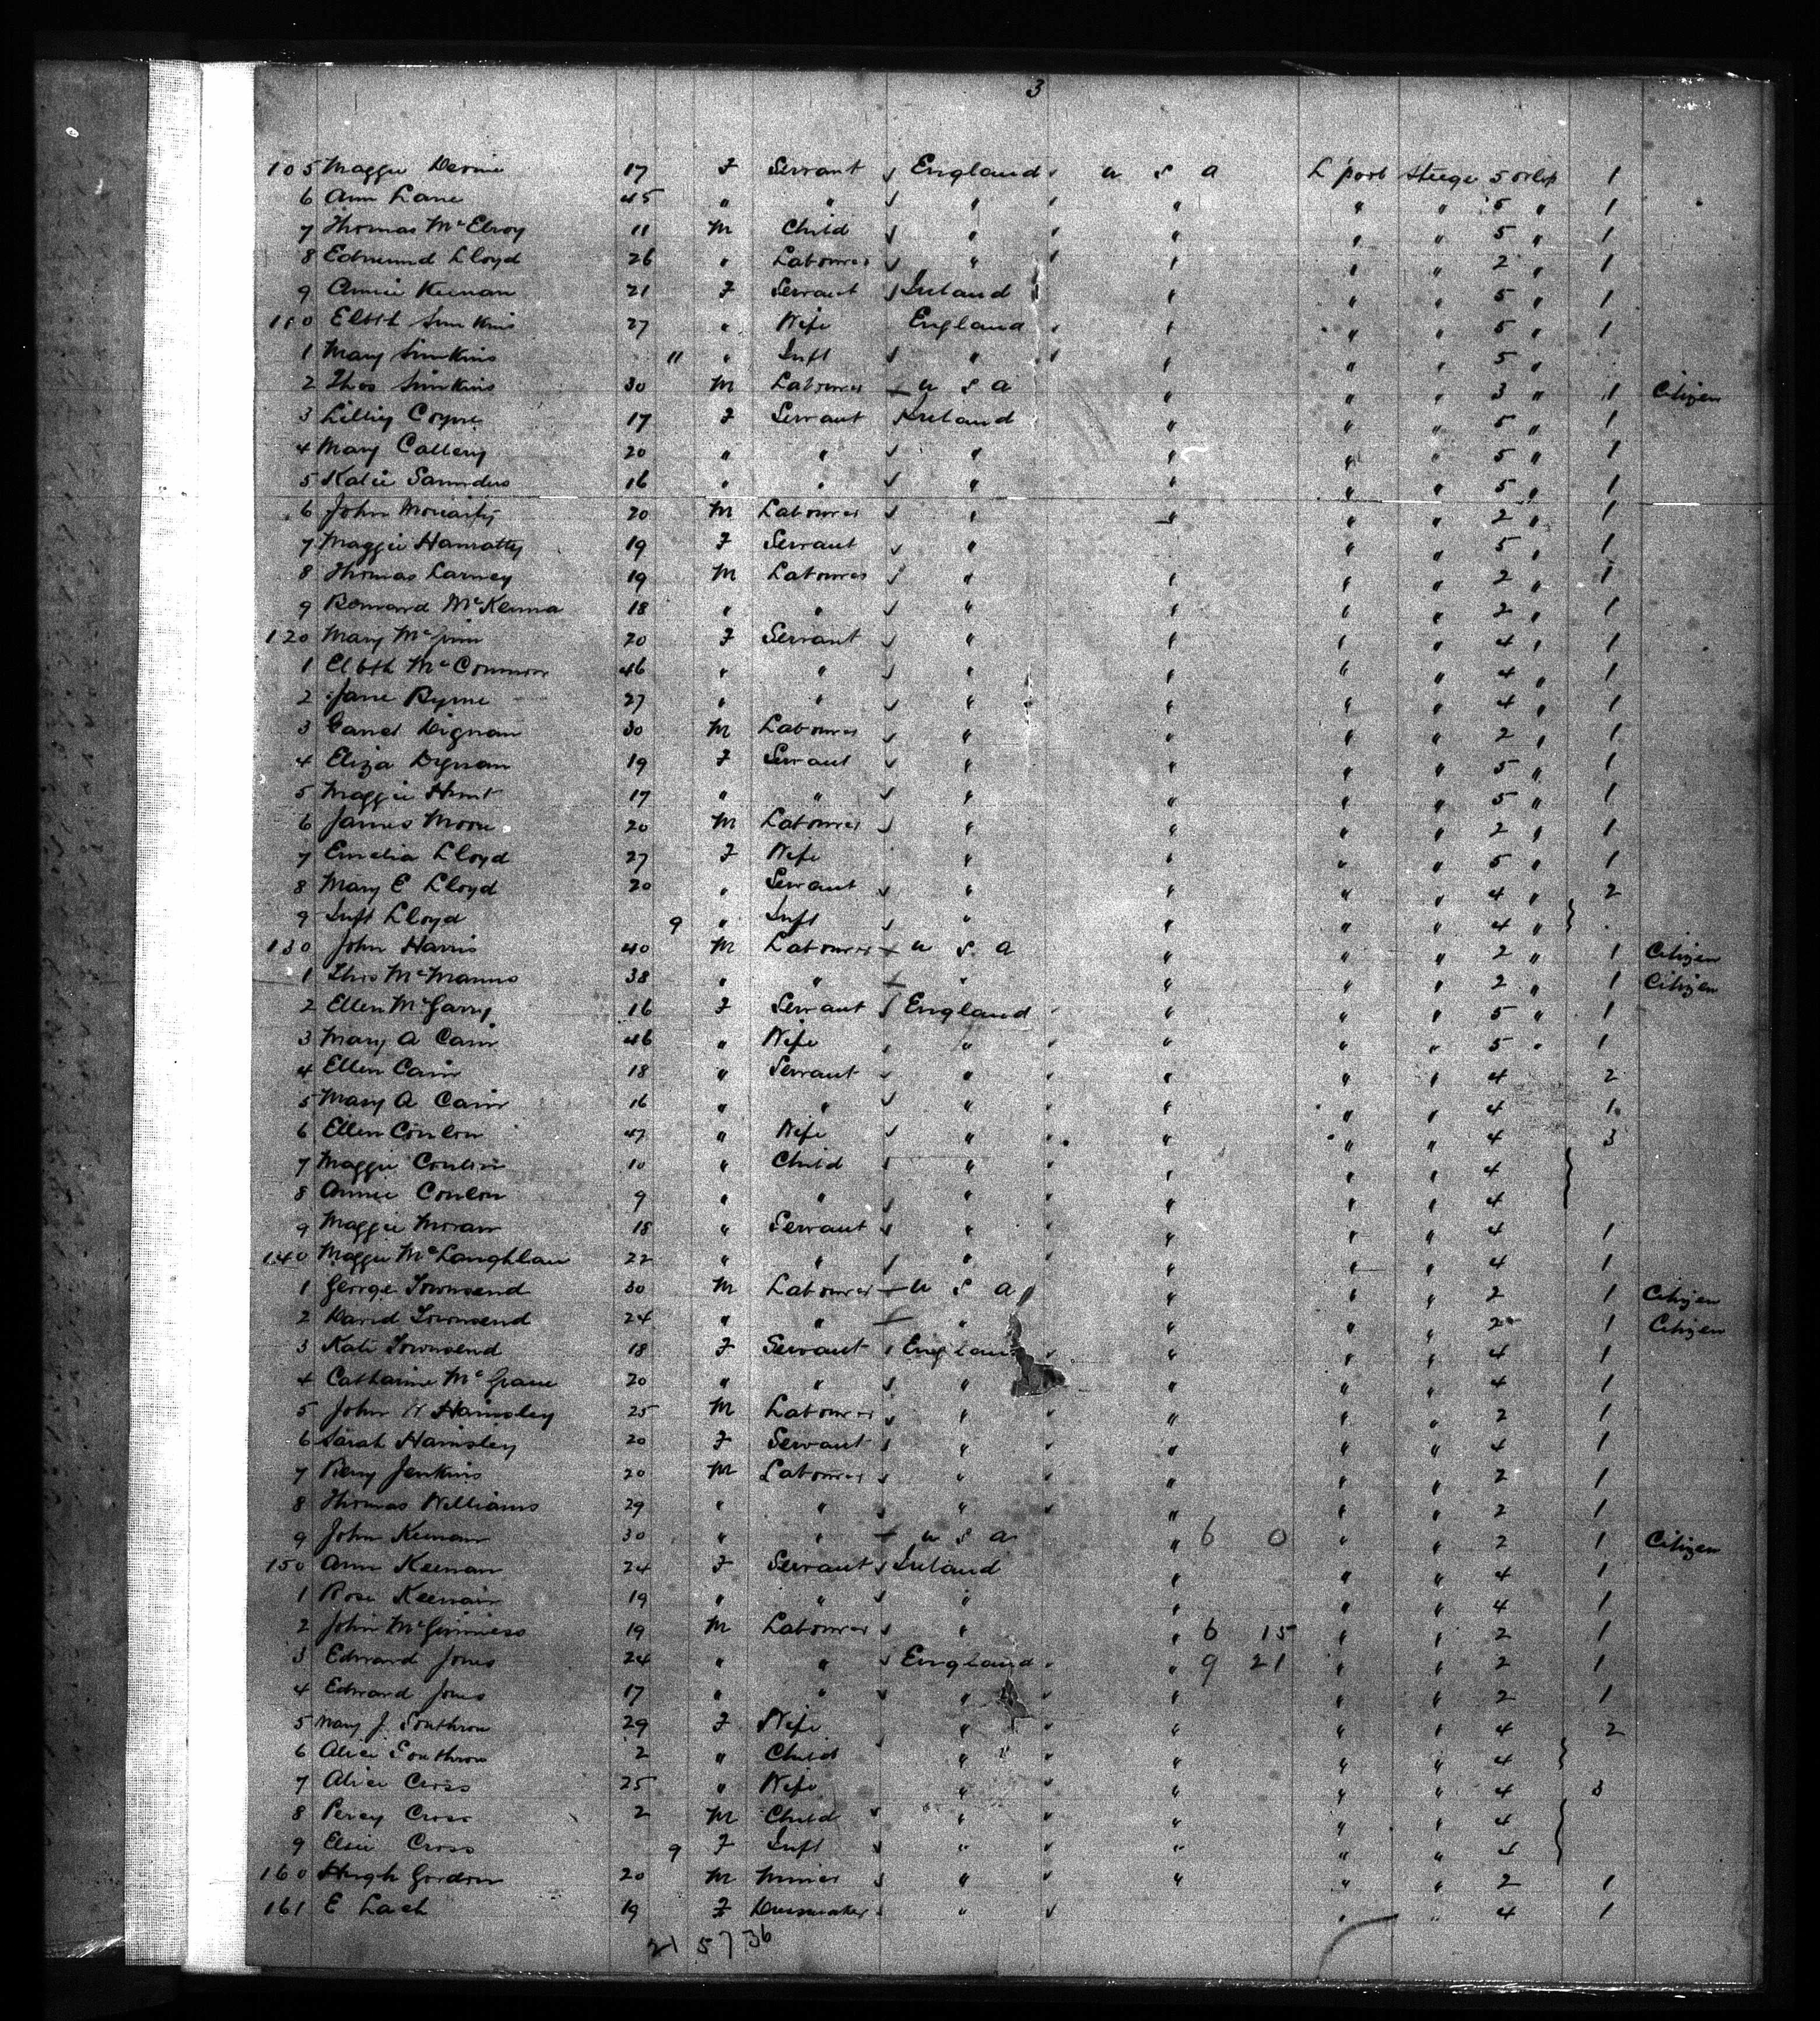 3
105 Maggie Devine 17 F Servant England U S A L'pool Steege 5 orlop 1
6 Ann Lane 45 " " " " " " 5 " 1
7 Thomas McElroy 11 M Child " " " " 5 " 1
8 Edmund Lloyd 26 " Labourer " " " " 2 " 1
9 Annie Keenan 21 F Servant Ireland " " " 5 " 1
110 Elbth Simkins 27 " Wife England " " " 5 " 1
1 Mary Simkins 11 " Inft " " " " 5 "
2 Thos Simkins 30 M Labourer U S A " " " 3 " 1 Citizen
3 Lilly Coyne 17 F Servant Ireland " " " 5 " 1
4 Mary Callery 20 " " " " " " 5 " 1
5 Katie Saunders 16 " " " " " " 5 " 1
6 John Moriarty 20 M Labourer " " " " 2 " 1
7 Maggie Hanratty 19 F Servant " " " 5 " 1
8 Thomas Larney 19 M Labourer " " " " 2 " 1
9 Bernard McKenna 18 " " " " " " 2 " 1
120 Mary McGinn 20 F Servant " " " " 4 " 1
1 Elbth McConnon 46 " " " " " " 4 " 1
2 Jane Byrne 27 " " " " " " 4 " 1
3 Dignan 30 M Labourer " " " " 2 " 1
4 Eliza Dignan 19 F Servant " " " " 5 " 1
5 Maggie Hunt 17 " " " " " " 5 " 1
6 James Moore 20 M Labourer " " " " 2 " 1
7 Emelia Lloyd 27 F Wife " " " " 5 " 1
8 Mary E Lloyd 20 " Servant " " " " 4 " 2
9 Inft Lloyd 9 " Inft " " " " 4 "
130 John Harris 40 M Labourer U S A " " " 2 " 1 Citizen
1 Thos McManus 38 " " " " " " 2 " 1 Citizen
2 Ellen McGarry 16 F Servant England " " " 5 " 1
3 Mary A Cain 46 " Wife " " " " 5 " 1
4 Ellen Cain 18 " Servant " " " " 4 2
5 Mary A Cain 16 " " " " " " 4 1
6 Ellen Conlon 47 " Wife " " " " 4 3
7 Maggie Conlon 10 " Child " " " " 4
8 Annie Conlon 9 " " " " " " 4
9 Maggie Moran 18 " Servant " " " " 4 1
140 Maggie McLoughlan 22 " " " " " " 4 1
1 George Townsend 30 M Labourer U S A " " " 2 1 Citizen
2 David Townsend 24 " " " " " " 2 1 Citizen
3 Kate Townsend 18 F Servant England " " " 4 1
4 Catharine McGrane 20 " " " " " " 4 1
5 John H Hainsley 25 M Labourer " " " " 2 1
6 Sarah Hainsley 20 F Servant " " " " 4 1
7 Benj Jenkins 20 M Labourer " " " " 2 1
8 Thomas Williams 29 " " " " " " 2 1
9 John Keenan 30 " " U S A " 6 0 " " 2 1 Citizen
150 Ann Keenan 24 F Servant Ireland " " " 4 1
1 Rose Keenan 19 " " " " " " 4 1
2 John McGinness 19 M Labourer " " 6 15 " " 2 1
3 Edward Jones 24 " " England " 9 21 " " 2 1
4 Edward Jones 17 " " " " " " 2 1
5 Mary J Southron 29 F Wife " " " " 4 2
6 Alice Southron 2 " Child " " " " 4
7 Alice Cross 25 " Wife " " " " 4 3
8 Percy Cross 2 M Child " " " " 4
9 Elsie Cross 9 F Inft " " " " 4
160 Hugh Gordon 20 M Miner " " " " 2 1
161 E Lach 19 F Dressmaker " " " 4 1
21 5736